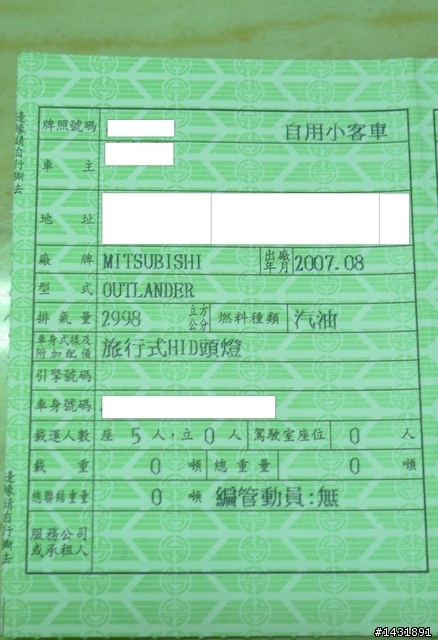 邊緣請自行撕去
牌照號碼 自用小客車
車主
地址
廠牌 MITSUBISHI 出廠年月 2007.08
型式 OUTLANDER
排氣量 2998 立方公分 燃料種類 汽油
車身式樣及附加配備 旅行式HID頭燈
引擎號碼
車身號碼
載運人數 座 5 人,立 0 人 駕駛室座位 0 人
載重 0 噸 總重量 0 噸
總聯結重量 0 噸 編管動員:無
服務公司或承租人
邊緣請自行撕去
#1431891